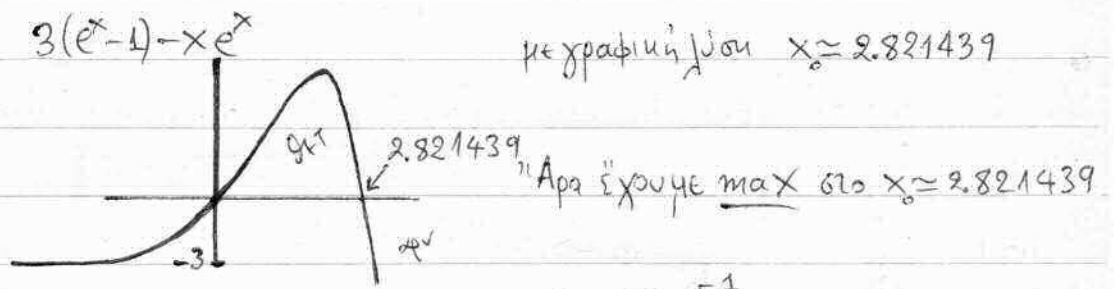 3(eˣ-1)-xeˣ
με γραφική λύση x₀≃2.821439
2.821439
θετ
Άρα έχουμε max στο x₀≃2.821439
-3
-1